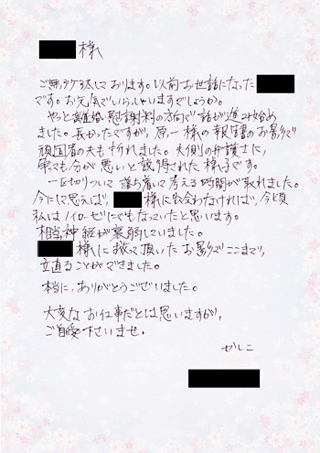 様
ご無沙汰しております。以前お世話になった
です。お元気でいらっしゃいますでしょうか。
やっと離婚、慰謝料の方向で話が進み始め
ました。長かったですが、原一様の報告書のお蔭で
頑固者の夫も折れました。夫側の弁護士に、
分が悪いと説得された様子です。
一区切りついて落ち着いて考える時間が取れました。
今にして思えば、様に出会わなければ、今頃
私はノイローゼにでもなっていたと思います。
相当神経が衰弱していました。
様に救って頂いたお蔭でここまで
立直ることができました。
本当に、ありがとうございました。
大変なお仕事だとは思いますが、
ご自愛下さいませ。
かしこ